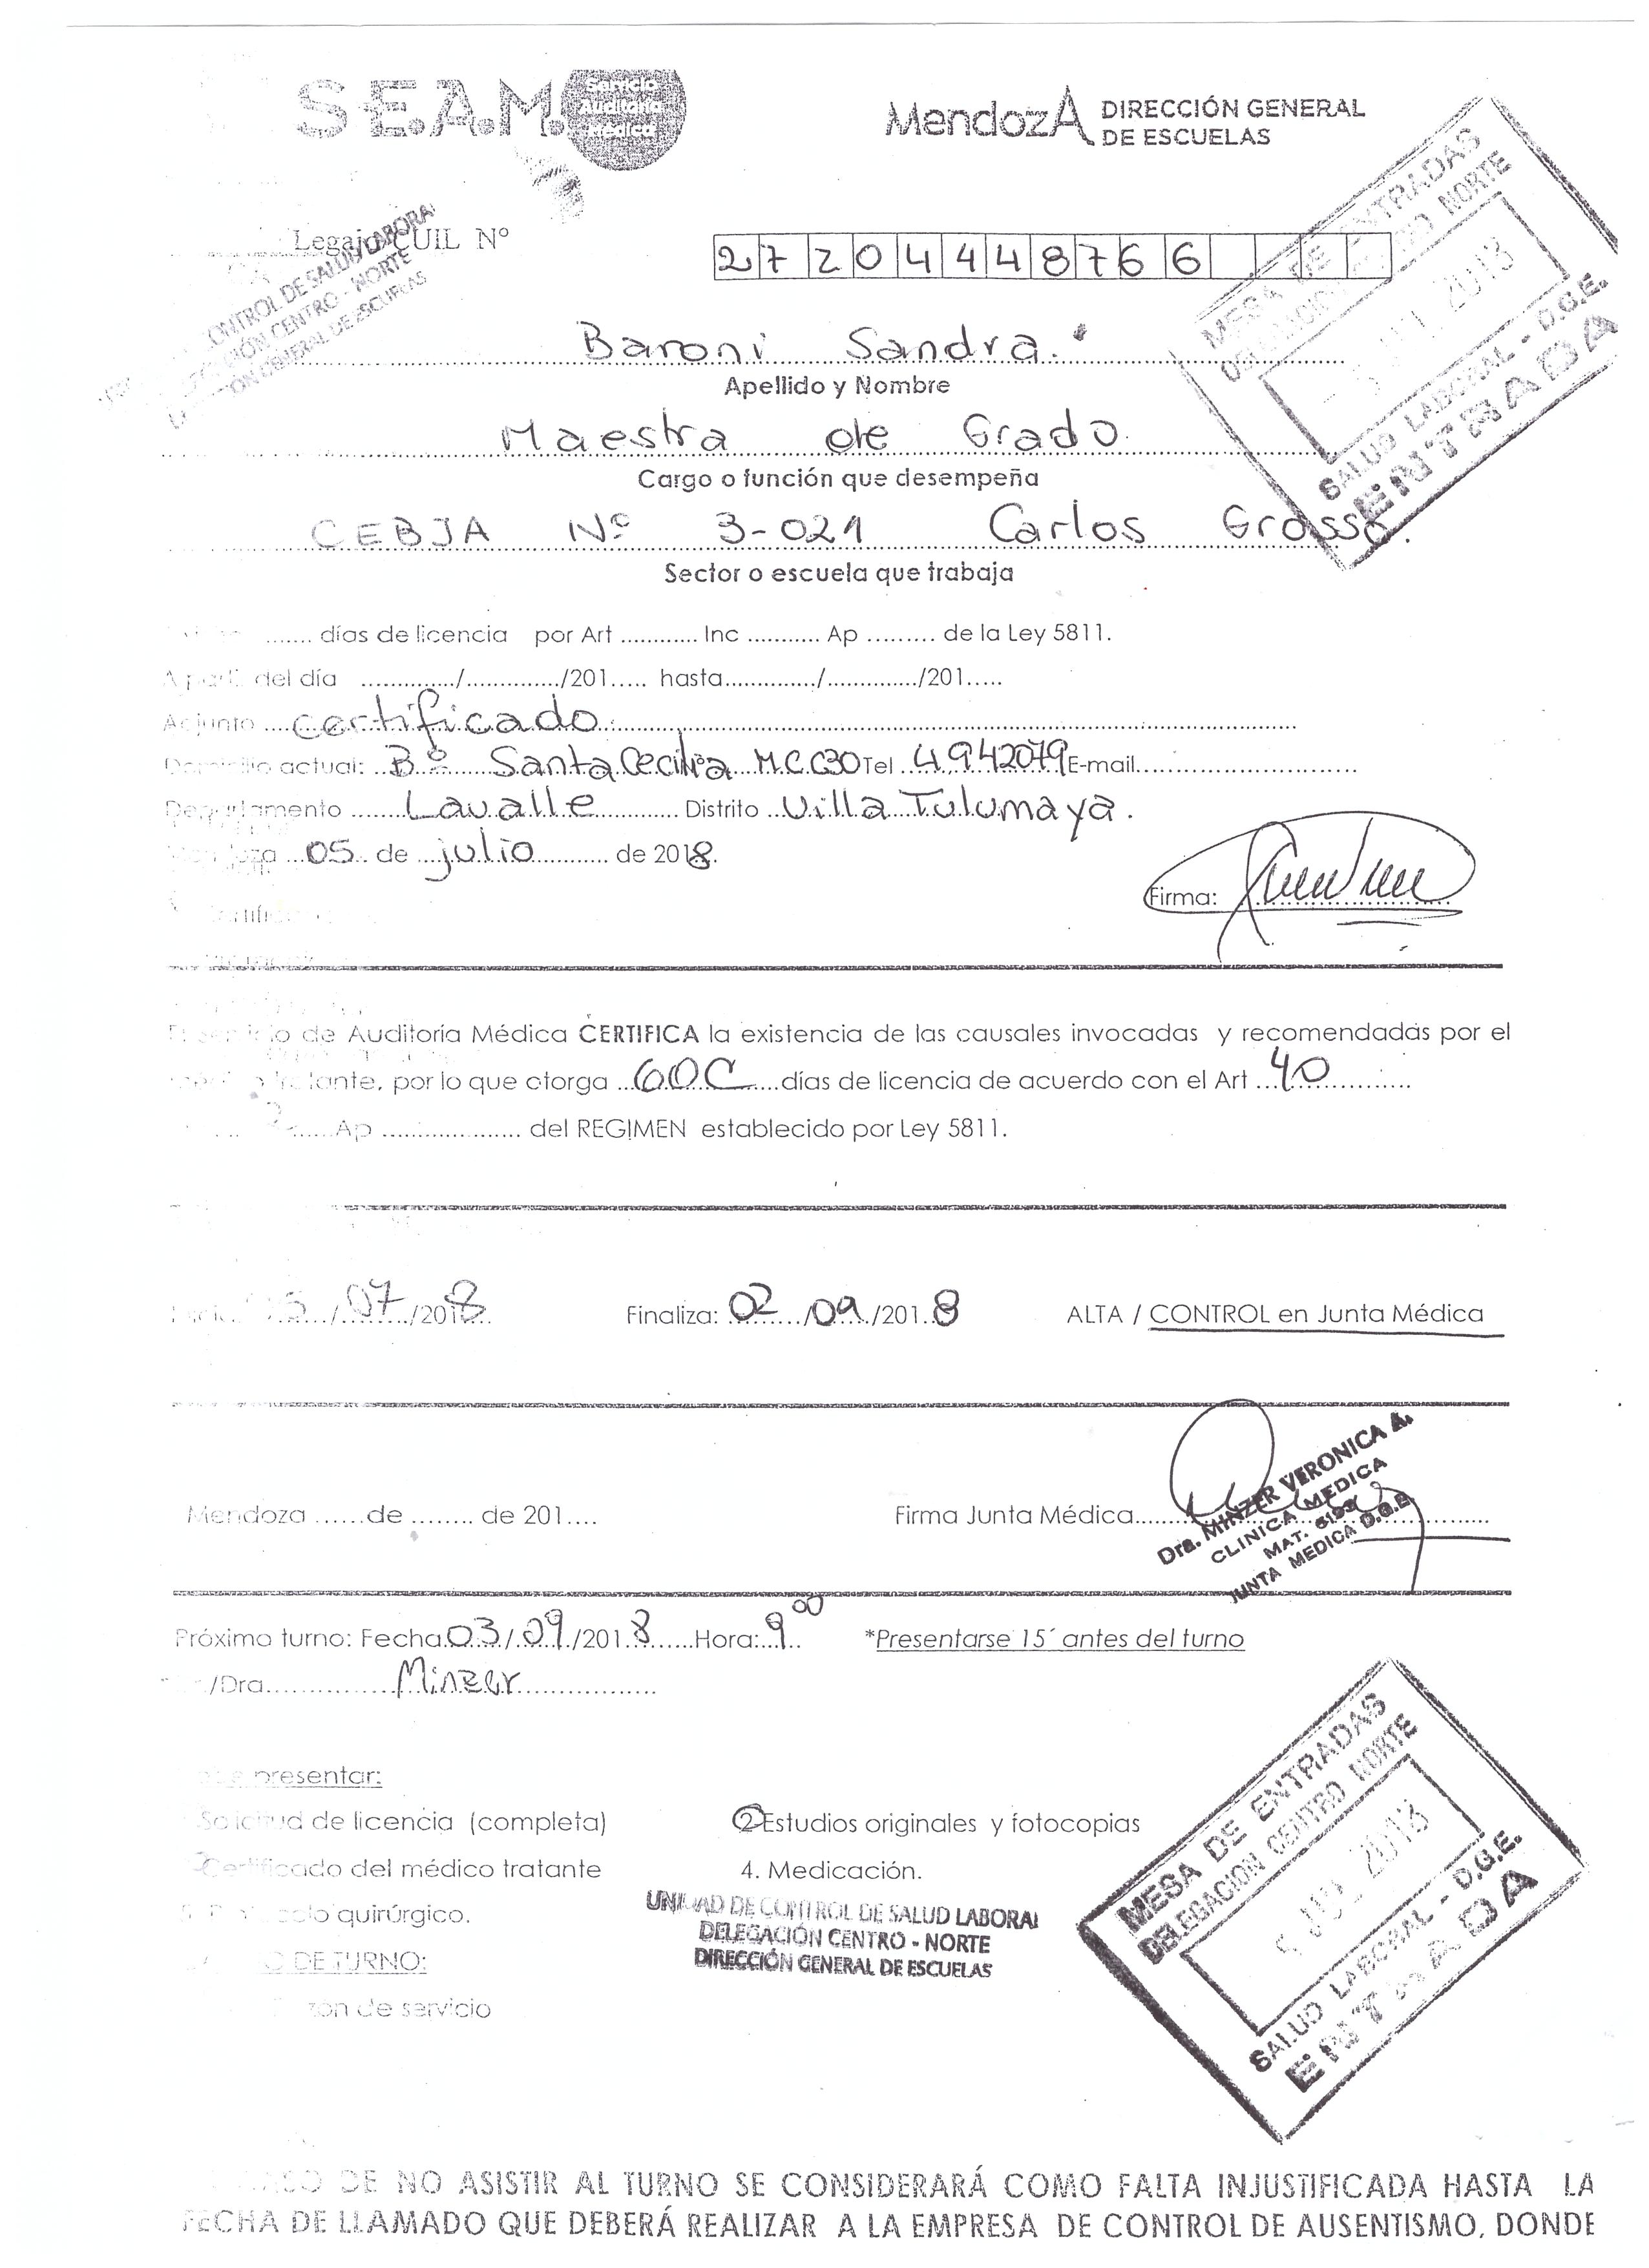 S.E.A.M. Servicio Auditoría Médica
MendozA DIRECCIÓN GENERAL DE ESCUELAS
Legajo CUIL Nº 27204448766
CONTROL DE SALUD LABORAL
CENTRO - NORTE
GENERAL DE ESCUELAS
MESA DE ENTRADAS
NORTE
2018
SALUD LABORAL - D.G.E.
ENTRADA
Baroni Sandra.
Apellido y Nombre
Maestra de Grado.
Cargo o función que desempeña
CEBJA Nº 3-021 Carlos Grosso.
Sector o escuela que trabaja
....... días de licencia por Art ............ Inc ........... Ap ......... de la Ley 5811.
A partir del día ............../............../201..... hasta............../............../201.....
Adjunto ....certificado.
Domicilio actual: Bº Santa Cecilia M.C C30 Tel 4942079 E-mail..................................
Departamento Lavalle Distrito Villa Tulumaya.
Mendoza 05 de julio de 2018.
Firma:
El Servicio de Auditoría Médica CERTIFICA la existencia de las causales invocadas y recomendadas por el
médico tratante, por lo que otorga días de licencia de acuerdo con el Art 40
Ap .................... del REGIMEN establecido por Ley 5811.
/07/2018 Finaliza: 02/09/2018 ALTA / CONTROL en Junta Médica
Mendoza ......de ........ de 201.... Firma Junta Médica
Dra. MINZER VERONICA A.
CLINICA MEDICA
MAT.
JUNTA MEDICA D.G.E
Próximo turno: Fecha 03/09/2018 Hora: 9 00 *Presentarse 15´ antes del turno
/Dra. Minzer
presentar:
Solicitud de licencia (completa) 2 Estudios originales y fotocopias
Certificado del médico tratante 4. Medicación.
quirúrgico.
UNIDAD DE CONTROL DE SALUD LABORAL
DELEGACIÓN CENTRO - NORTE
DIRECCIÓN GENERAL DE ESCUELAS
DE TURNO:
de servicio
MESA DE ENTRADAS
DELEGACION CENTRO NORTE
5 JUL 2018
SALUD LABORAL - D.G.E.
ENTRADA
DE NO ASISTIR AL TURNO SE CONSIDERARÁ COMO FALTA INJUSTIFICADA HASTA LA
FECHA DE LLAMADO QUE DEBERÁ REALIZAR A LA EMPRESA DE CONTROL DE AUSENTISMO, DONDE